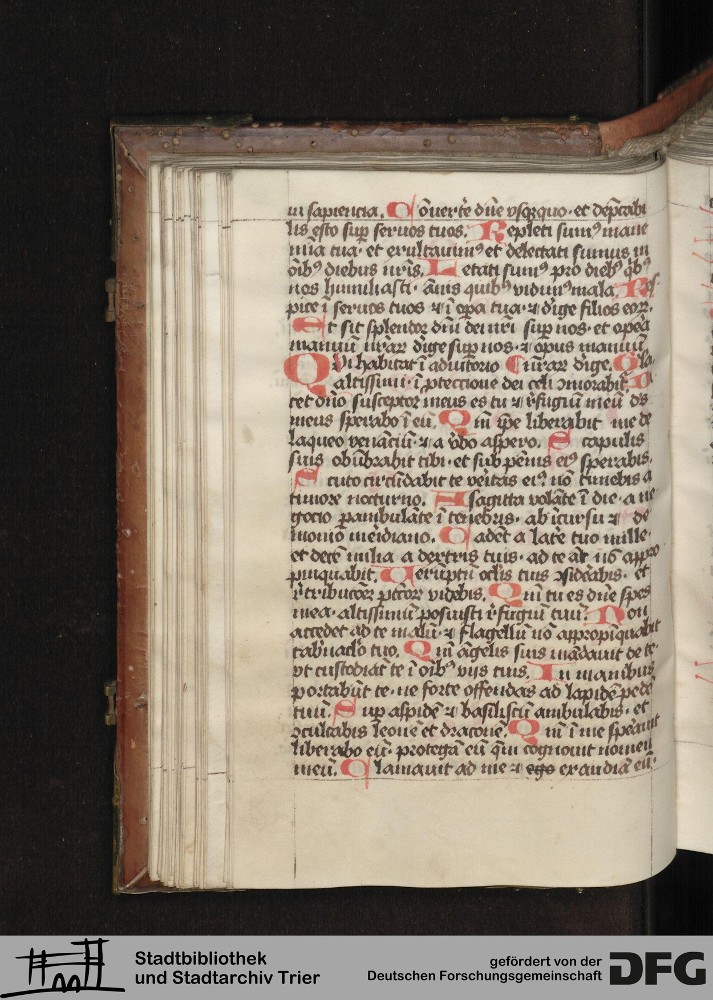 in sapiencia. Cōuerte dn̄e vsqꝫquo· et dep̄cabi
lis esto sup̱ seruos tuos. Repleti sumꝰ mane
mīa tua· et exultauimꝰ et delectati sumus in
oībꝰ diebus nr̄is. Letati sumꝰ pro diebꝰ qͥbꝰ
nos humiliasti· ānis quibꝰ vidimꝰ mala. Res
pice ī seruos tuos ⁊ ī oꝑa tua· ⁊ dirige filios eoꝝ.
Et sit splendor dn̄i dei nr̄i sup̱ nos· et opera
manuū nr̄aꝝ dirige sup̱ nos· ⁊ opus manuū
Qvi habitat ī adiutorio nr̄aꝝ dirige. Gl̄a
altissimi· ī ꝓteccione dei celi ꝯmorabit̄. Di
cet dn̄o susceptor meus es tu ⁊ refugiū meū ds̄
meus sperabo ī eū. Qm̄ ip̄e liberabit me de
laqueo venāciū· ⁊ a v̄bo aspero. Scapulis
suis obūbrabit tibi· et sub pēnis eiꝰ sperabis.
Scuto circūdabit te veritas eiꝰ nō timebis a
timore nocturno. A sagitta volāte ī die· a ne
gocio ꝑambulāte ī tenebris· ab īcursu ⁊ de
monio meridiano. Cadēt a latere tuo mille·
et decē milia a dextris tuis· ad te aūt nō appro
pinquabit. Verūptn̄ oclīs tuis ꝯsiderabis· et
retribucōꝫ pctōꝝ videbis. Qm̄ tu es dn̄e spes
mea· altissimū posuisti refugiū tuū. Non
accedet ad te malū· ⁊ flagellū nō appropīquabit
tab̄naclo tuo. Qm̄ āgelis suis mādauit de te·
vt custodiāt te ī oībꝰ vijs tuis. In manibus
portabūt te· ne forte offendas ad lapidē pedē
tuū. Sup̱ aspidē ⁊ basiliscū ambulabis· et
ꝯculcabis leonē et draconē. Qm̄ ī me sperauit
liberabo eū· protegā eū qm̄ cognouit nomen
meū. Clamauit ad me ⁊ ego exaudiā eū·
Stadtbibliothek
und Stadtarchiv Trier
gefördert von der
Deutschen Forschungsgemeinschaft DFG